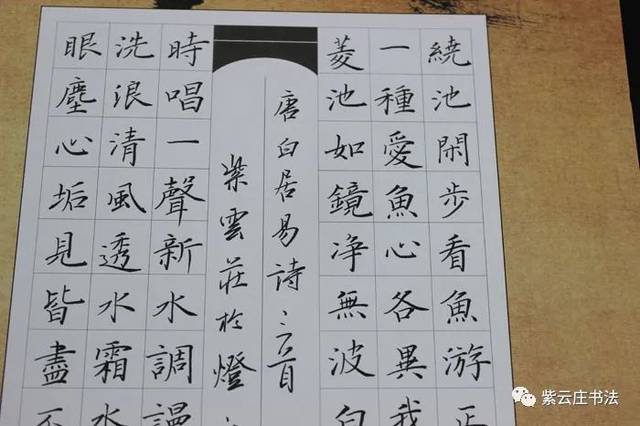 繞池閑步看魚游正
一種愛魚心各異我
菱池如鏡净無波白
唐白居易詩首
紫雲莊於燈
時唱一聲新水調謾
洗浪清風透水霜水
眼塵心垢見皆盡不
紫云庄书法